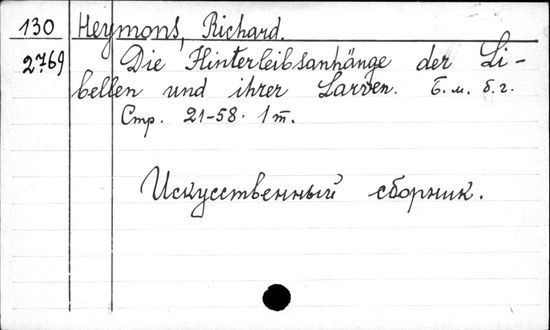 130 Heymons, Richard.
2769 Die Hinterleibsanhänge der Li-
bellen und ihrer Larven. Б. м. б. г.
Стр. 21-58. 1 т.
Искусственный сборник.